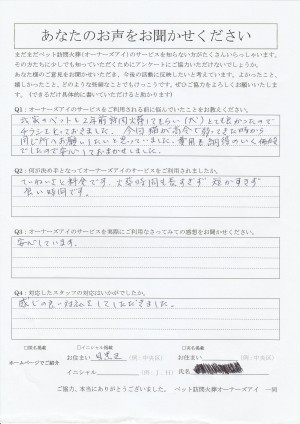 あなたのお声をお聞かせください
まだまだペット訪問火葬(オーナーズアイ)のサービスを知らない方がたくさんいらっしゃいます。
その方たちに少しでも知っていただくためにアンケートにご協力いただけないでしょうか。
あなた様のご意見をお聞かせいただき、今後の活動に反映したいと考えています。よかったこと、
嬉しかったこと、どのような些細なことでもけっこうです。ぜひご協力をよろしくお願いいたします。
(できるだけ具体的に書いていただけると助かります)
Q1:オーナーズアイのサービスをご利用される前に悩んでいたことをお教えください。
のペットを2年前訪問火葬してもらい(犬)とても良かったので
チラシをとっておきました。今回猫が高令で弱ってきた時から
同じ所へお願いしたいと思っていました。費用も納得のいく価格
でしたので安心しておまかせしました。
Q2:何が決め手となってオーナーズアイのサービスをご利用されましたか。
ていねいさと料金です。火葬時間も長すぎず 短かすぎず
良い時間です。
Q3:オーナーズアイのサービスを実際にご利用なさってみての感想をお聞かせください。
安心しています。
Q4:対応したスタッフの対応はいかがでしたか。
感じの良い対応をしていただきました。
□匿名掲載 □イニシャル掲載 □実名掲載
ホームページでご紹介
お住まい 目黒区 (例:中央区) お住まい (例:中央区)
イニシャル (例:J.H) 氏名
ご協力、本当にありがとうございました。 ペット訪問火葬オーナーズアイ 一同